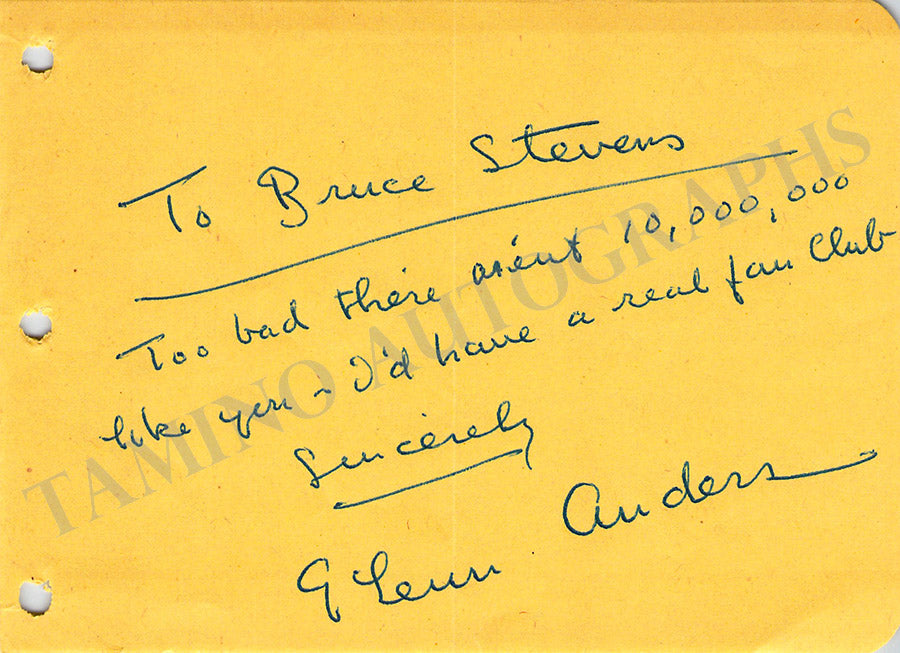 To Bruce Stevens
Too bad there aren't 10,000,000
like you - I'd have a real fan Club
Sincerely
Glenn Anders
TAMINO AUTOGRAPHS